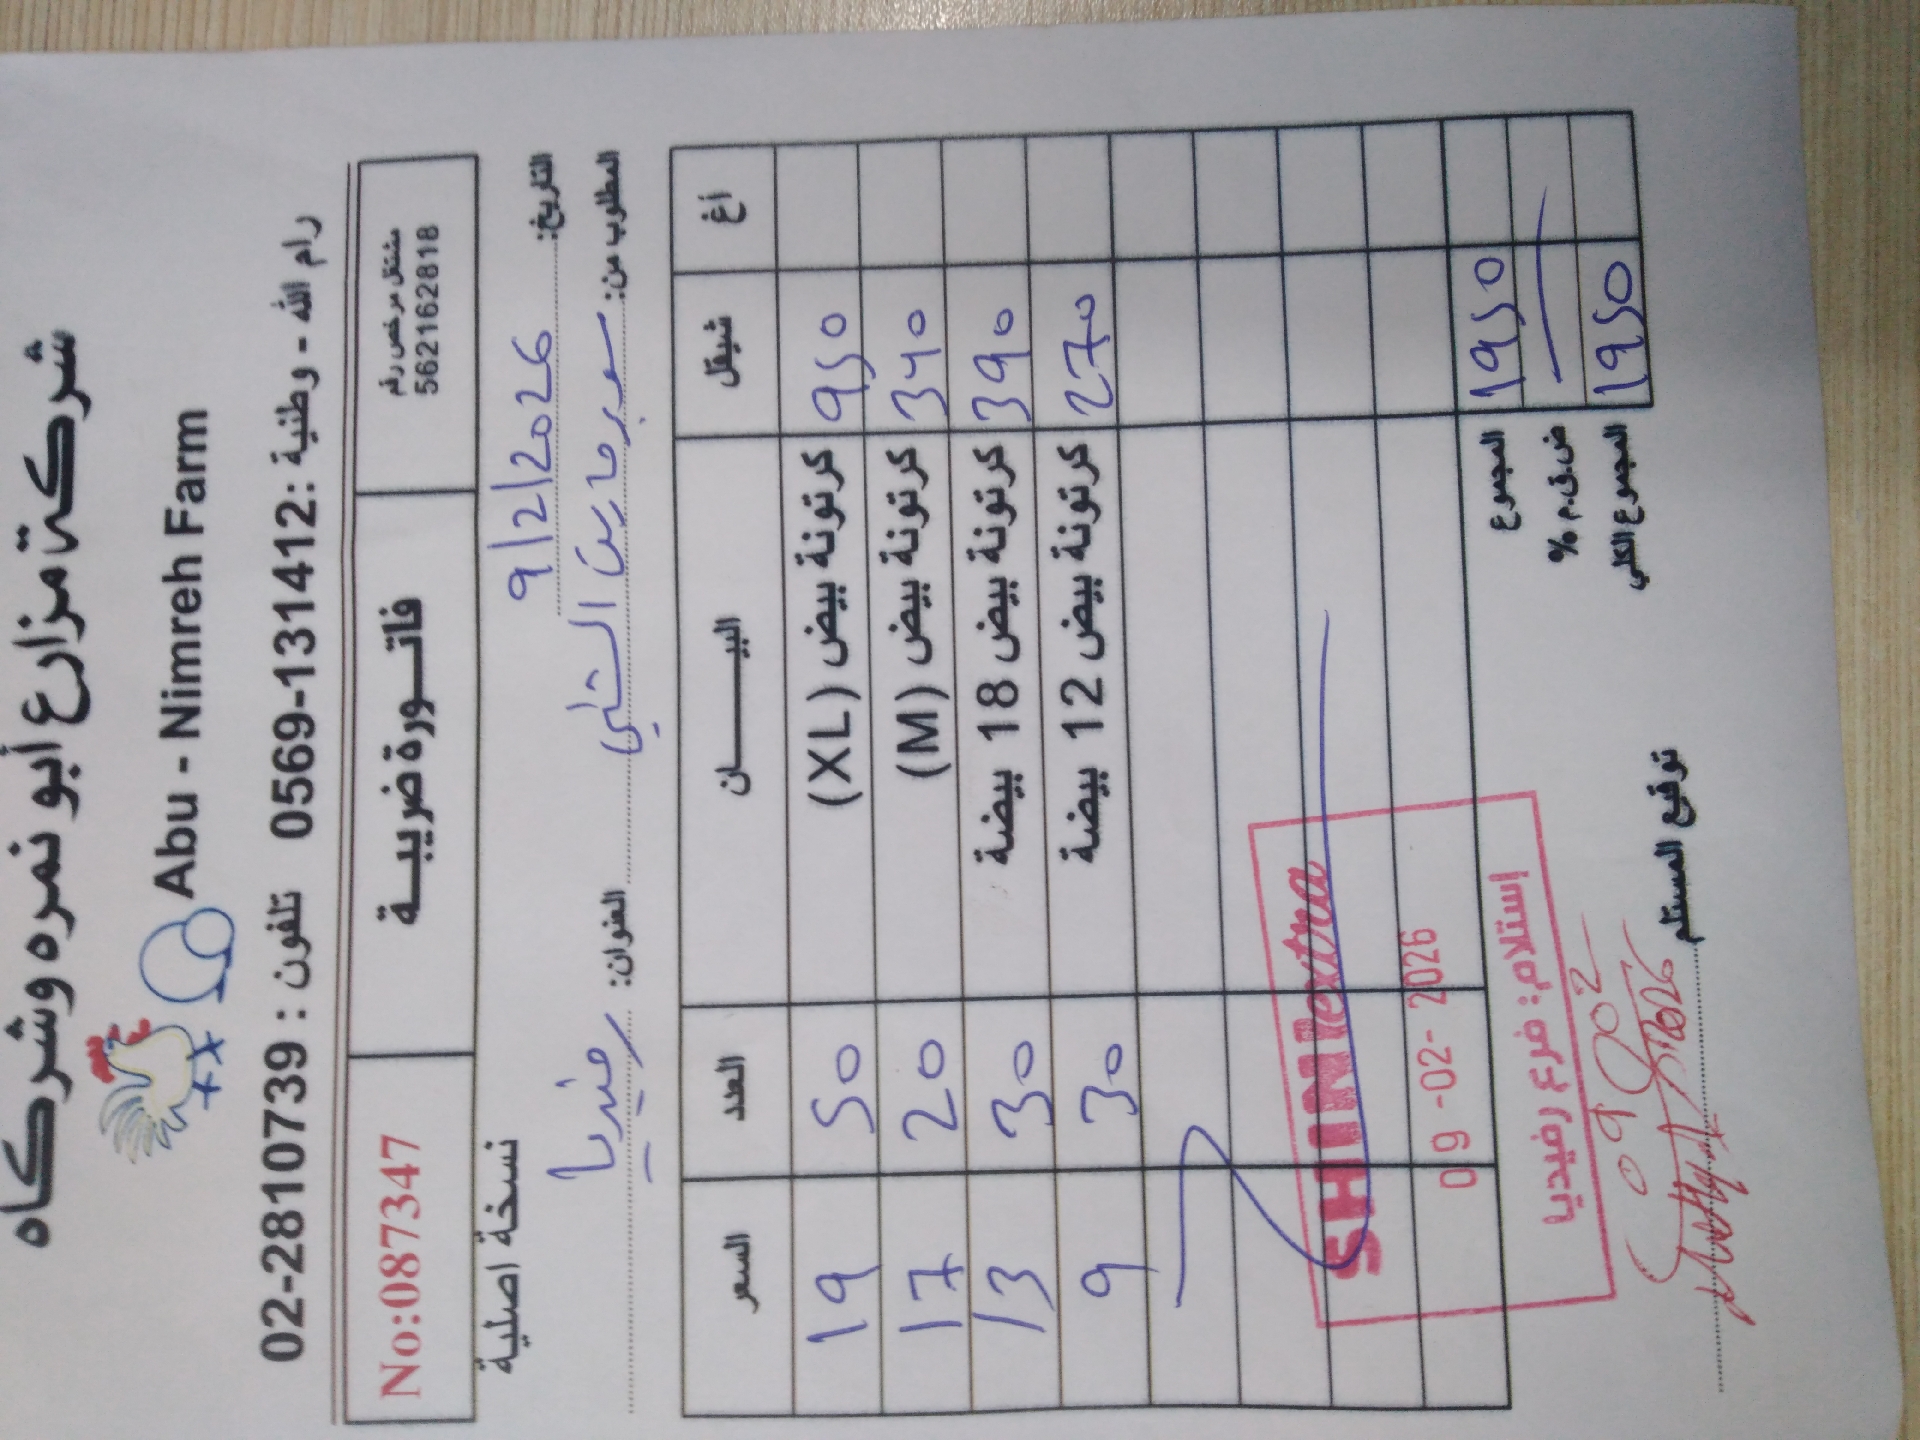 شركة مزارع أبو نمره وشركاه
Abu - Nimreh Farm
رام الله - وطنية : 0569-131412 تلفون : 02-2810739
مشتغل مرخص رقم
562162818
فاتـــورة ضريبيــة
No:087347
نسخة اصلية
التاريخ: 9/2/2026
المطلوب من: سوبر ماركت الشني العنوان: رفيديا
أغ شيقل البيــــــان العدد السعر
950 كرتونة بيض (XL) 50 19
340 كرتونة بيض (M) 20 17
390 كرتونة بيض 18 بيضة 30 13
270 كرتونة بيض 12 بيضة 30 9
المجموع 1950
ض.ق.م %
المجموع الكلي 1950
SHINIextra
09 -02- 2026
إستلام: فرع رفيديا
توقيع المستلم